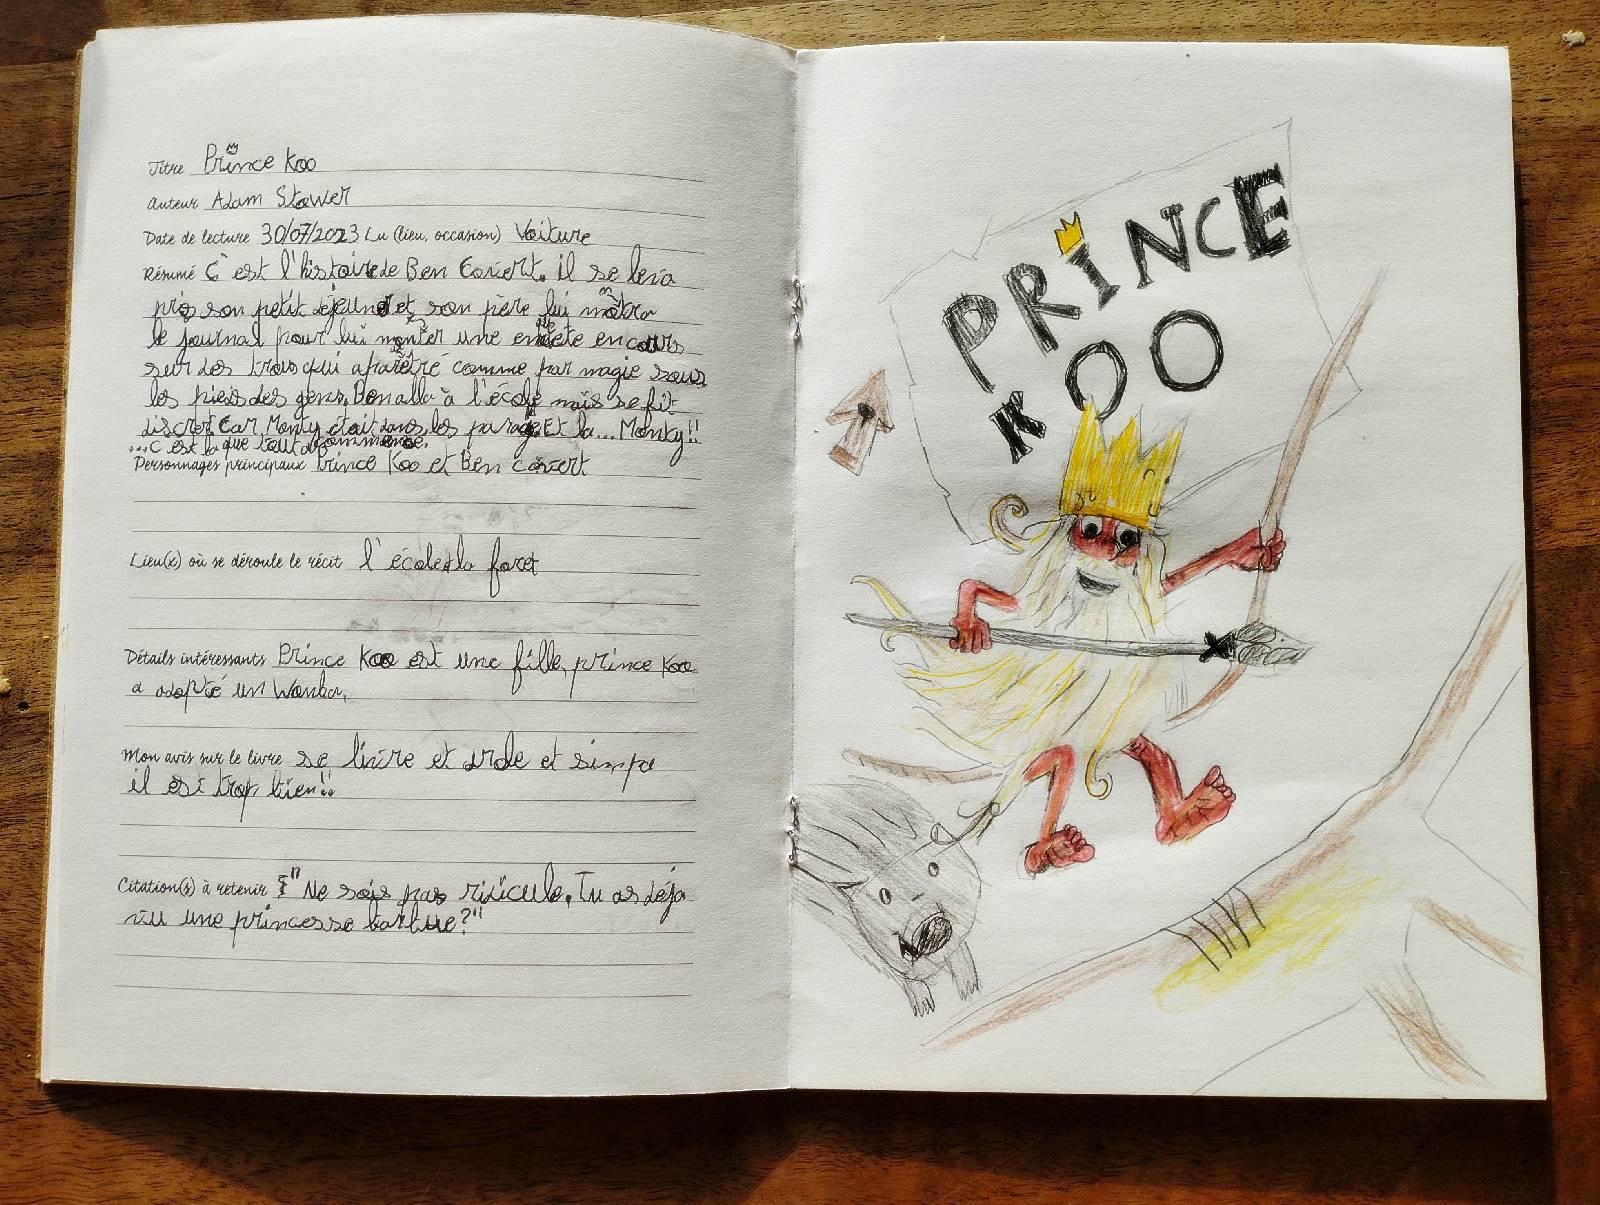 Titre Prince Koo
Auteur Adam Stower
Date de lecture 30/07/2023 Lu (lieu, occasion) Voiture
Résumé C'est l'histoire de Ben Covert. il se leva
pris son petit déjeuner et son père lui montra
le journal pour lui montrer une enquete en cours
sur des trous qui aparêtré comme par magie sous
les pieds des gens. Ben alla à l'école mais se fit
discret Car Monty était dans les parage. Et la... Monty!!
...C'est la que tout commence.
Personnages principaux Prince Koo et Ben Covert
Lieu(x) où se déroule le récit l'école la foret
Détails intéressants Prince Koo est une fille, prince Koo
a adopté un Wonba,
Mon avis sur le livre se livre et drole et simpa
il est trop bien!!
Citation(s) à retenir "Ne sois pas ridicule, Tu as déja
vu une princesse barbue?"
PRINCE
KOO